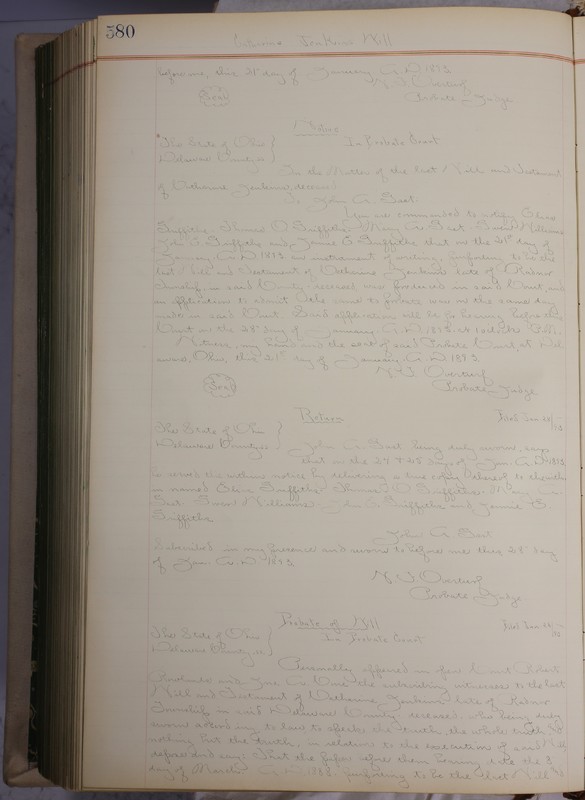 580
Catherine Jenkins Will
before me, this 21st day of January A.D. 1893
N. J. Overturf
Seal
Probate Judge
Notice
The State of Ohio }
In Probate Court
Delaware County ss }
In the Matter of the last Will and Testament
of Catharine Jenkins, deceased
To John A. Gast.
You are commanded to notify
Griffiths, Thomas O Griffiths, Mary A. Gast, Williams
John C. Griffiths and Jennie E Griffiths that on the 21st day of
January A.D. 1893 an instrument of writing, purporting to be the
last Will and Testament of Catharine Jenkins late of Radnor
Township in said County, deceased was produced in said Court, and
an application to admit the same to Probate was on the same day
made in said Court. Said application will be for hearing before this
Court on the 28th day of January A.D. 1893, at
Witness, my hand and the seal of said Probate Court, at Del-
aware, Ohio, this 21st day of January A.D. 1893.
N. J. Overturf
Seal
Probate Judge
Return
Filed Jan 28/93
The State of Ohio }
Delaware County ss. }
John A. Gast being duly sworn, says
that on the 24 & 25 days of Jan. A.D. 1893
he served the within notice by delivering a true copy thereof to
in named Griffiths Thomas O Griffiths, Mary A.
Gast Williams, John C Griffiths and Jennie E
Griffiths
John A. Gast
Subscribed in my presence and sworn to before me this 28 day
of Jan. A.D. 1893
N. J. Overturf
Probate Judge
Probate of Will
Filed Jan 28/93
The State of Ohio }
In Probate Court
Delaware County ss }
Personally appeared in open Court Robert
and the subscribing witnesses to the last
Will and Testament of Catharine Jenkins late of Radnor
Township in said Delaware County deceased, who being duly
sworn according to law to speak the truth, the whole truth &
nothing but the truth, in relation to the execution of said Will
depose and say: That the paper before them bearing date the 8
day of March A.D. 1888, purporting to be the last Will &